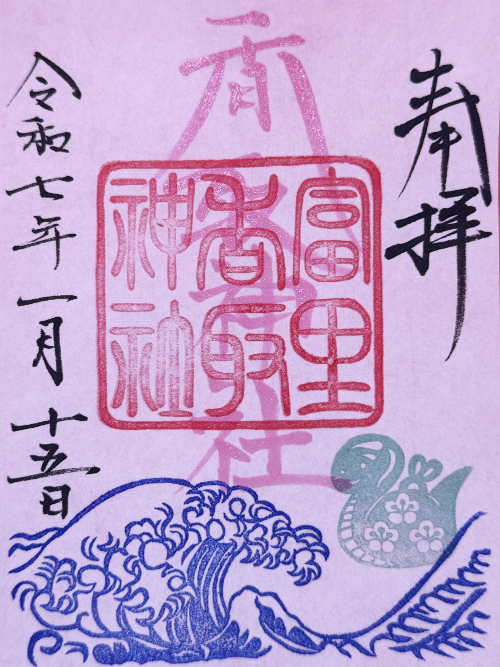 奉拝
香取神社
富里
香取
神社
令和七年一月十五日